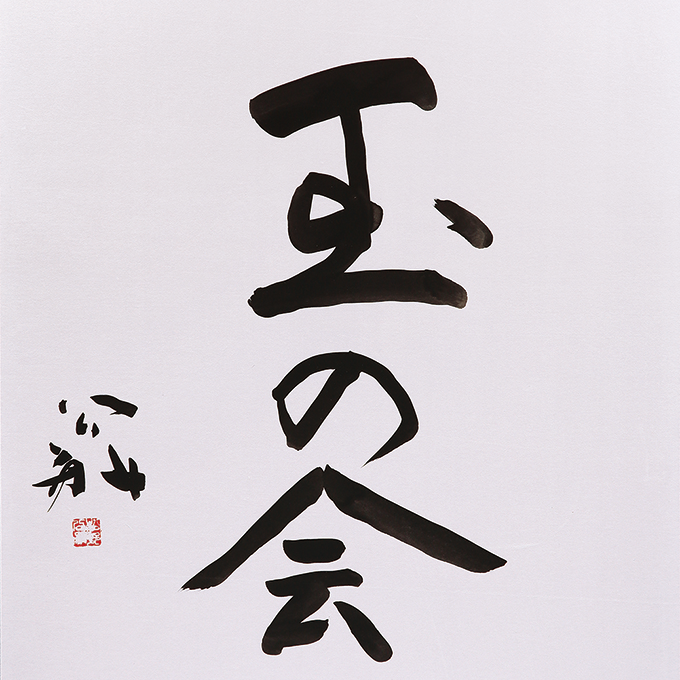 玉の会